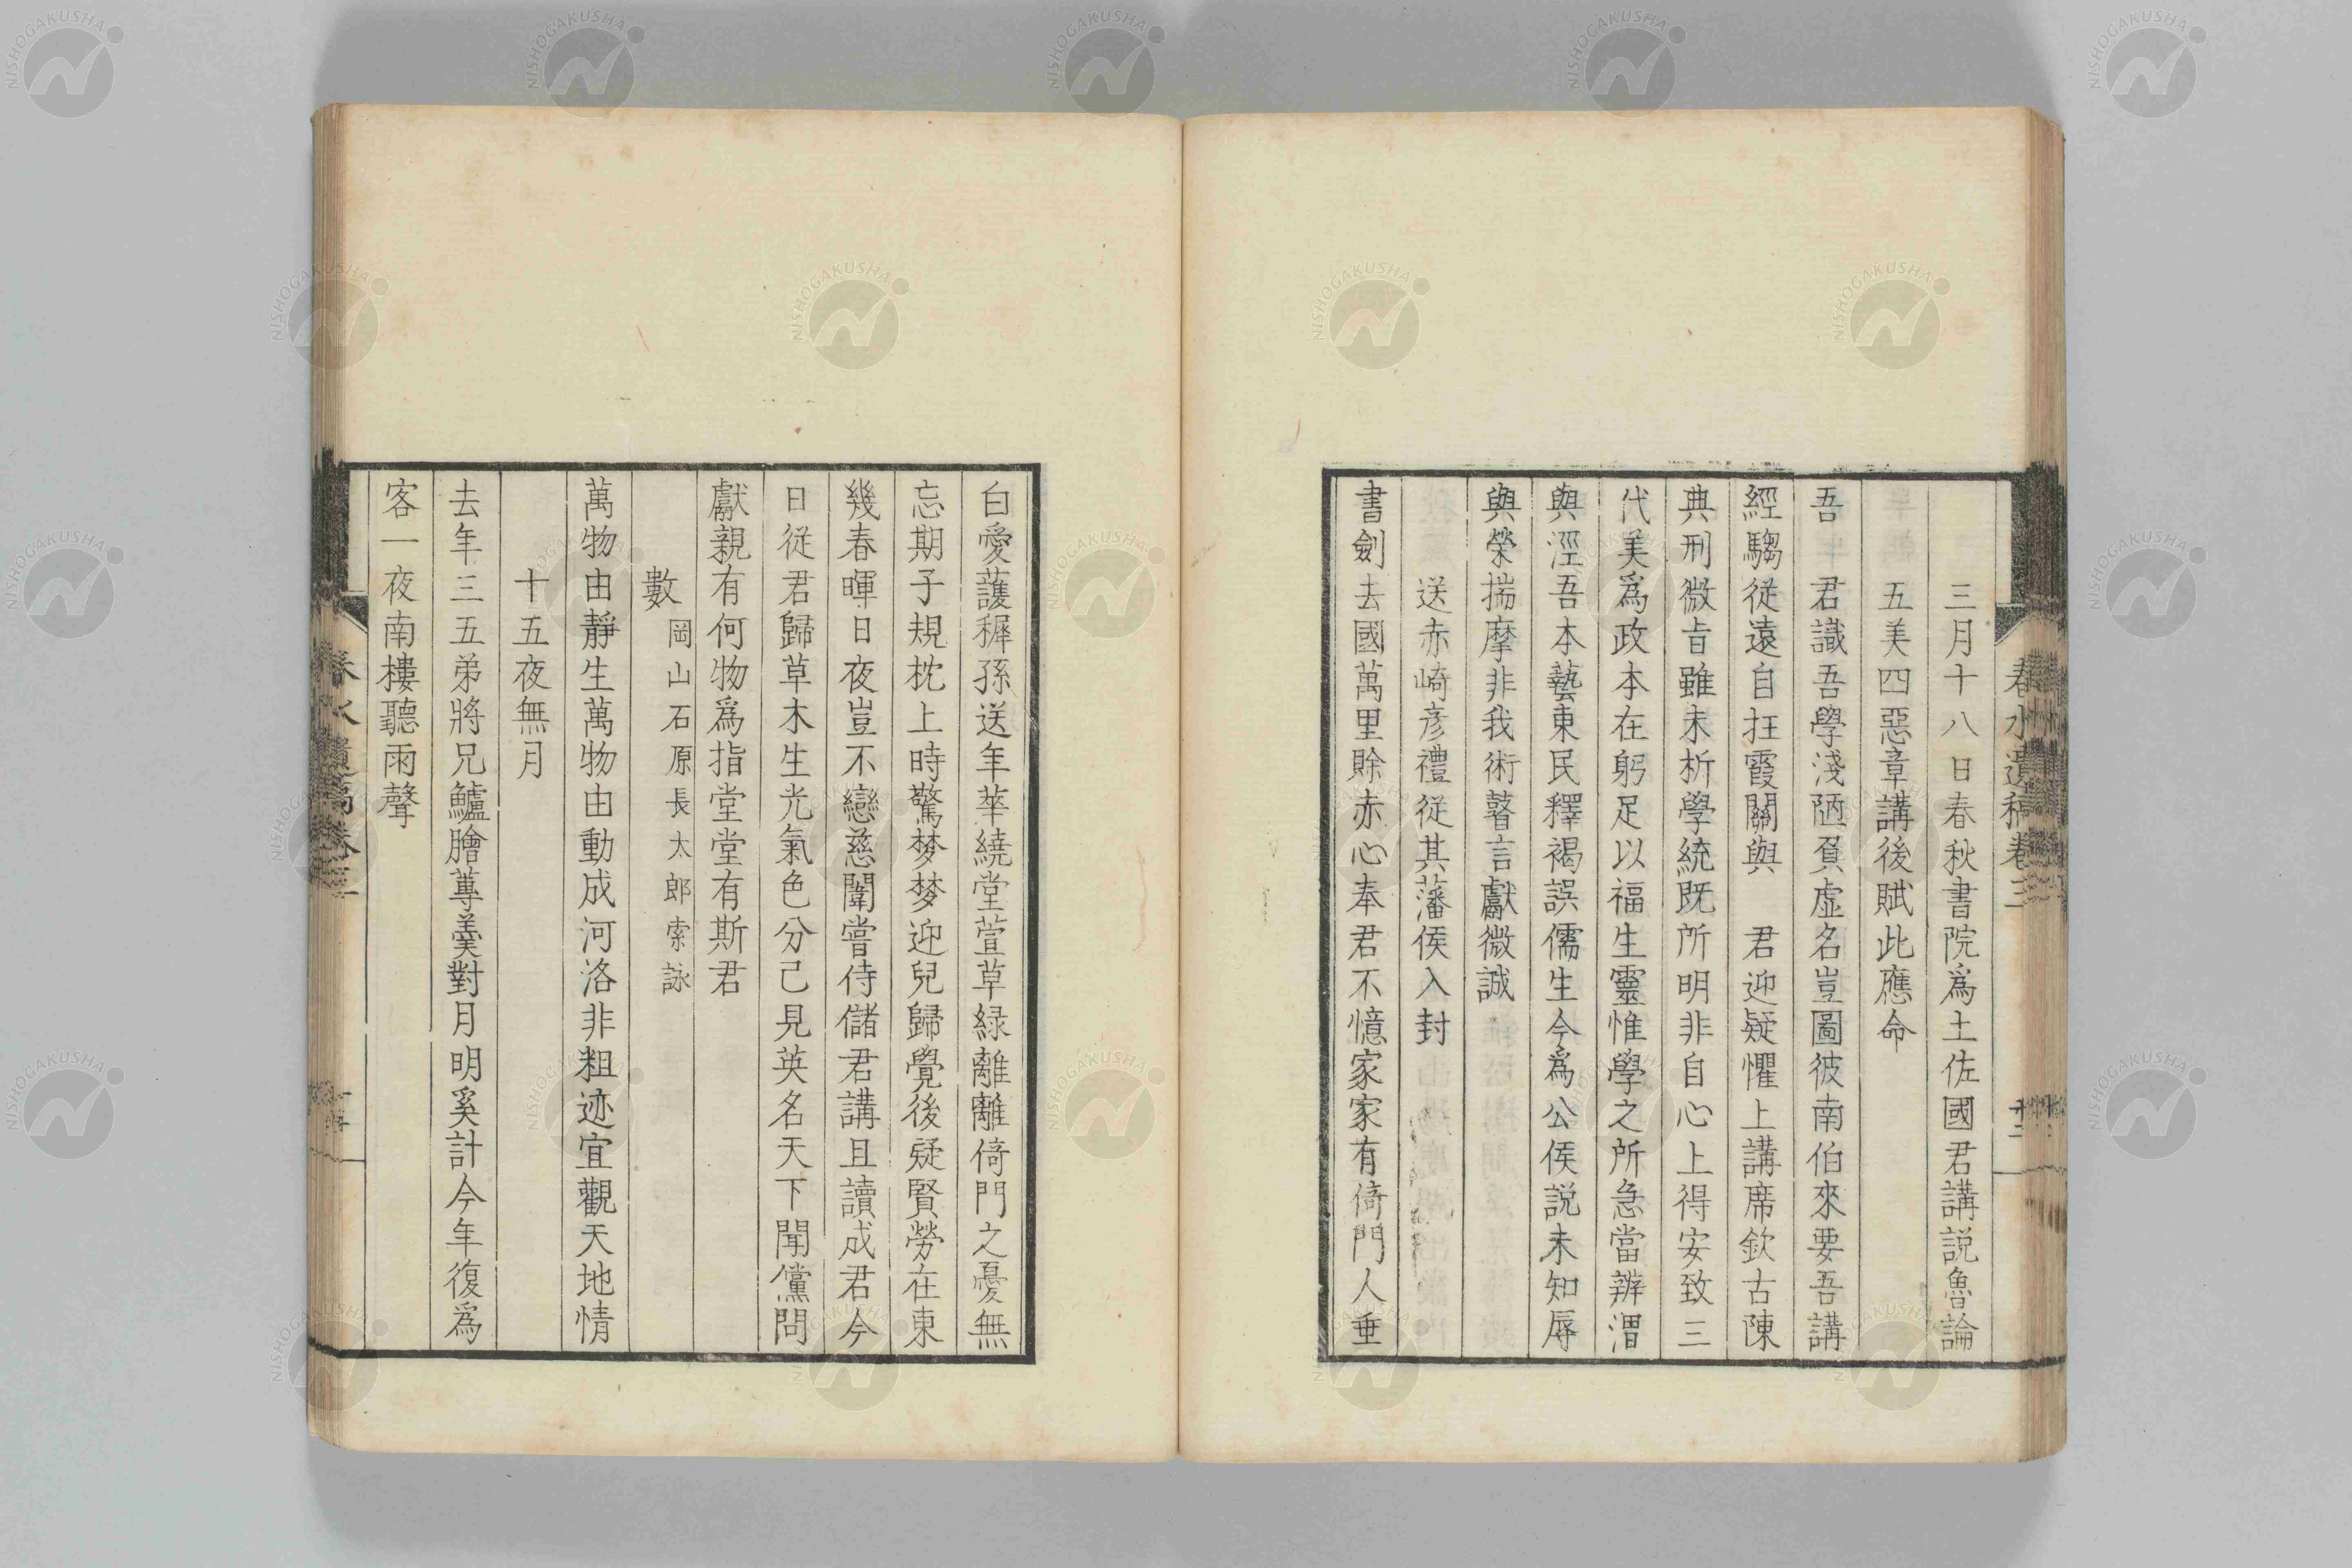 春水遺稿卷三
三月十八日春秋書院爲土佐國君講説魯論
五美四惡章講後賦此應命
吾　君識吾學淺陋負虛名豈圖彼南伯來要吾講
經騶從遠自抂霞關與　君迎疑懼上講席欽古陳
典刑微旨雖未析學統既所明非自心上得安致三
代美爲政本在躬足以福生靈惟學之所急當辨渭
與涇吾本藝東民釋褐誤儒生今爲公侯説未知辱
與榮揣摩非我術瞽言獻微誠
送赤崎彦禮從其藩侯入封
書劍去國萬里賒赤心奉君不憶家家有倚門人垂
白愛護穉孫送年華繞堂萱草緑離離倚門之憂無
忘期子規枕上時驚梦梦迎兒歸覺後疑賢勞在東
幾春暉日夜豈不戀慈闈嘗侍儲君講且讀成君今
日從君歸草木生光氣色分已見英名天下聞儻問
獻親有何物爲指堂堂有斯君
數岡山石原長太郎索詠
萬物由靜生萬物由動成河洛非粗迹宜觀天地情
十五夜無月
去年三五弟將兄鱸膾蓴羹對月明奚計今年復爲
客一夜南樓聽雨聲
春水遺稿卷三
NISHOGAKUSHA